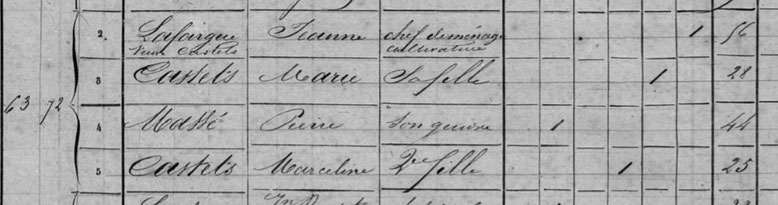 2. Lafargue Jeanne chef de ménage 1 56
Veuve Castets cultivatrice
3 Castets Marie Sa fille 1 28
63 72
4 Massé Pierre son gendre 1 44
5 Castets Marceline 2e fille 1 25